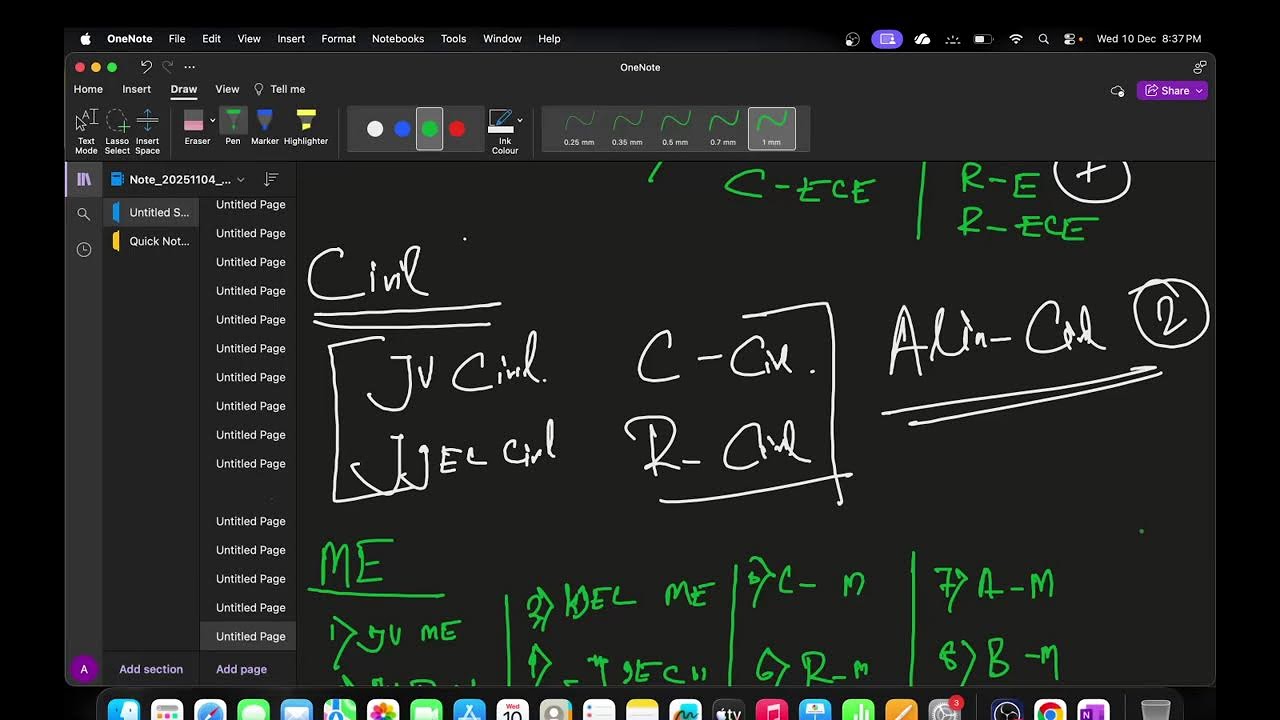 OneNote File Edit View Insert Format Notebooks Tools Window Help Wed 10 Dec 8:37 PM
OneNote
Home Insert Draw View Tell me Share
Text Mode Lasso Select Insert Space Eraser Pen Marker Highlighter Ink Colour 0.25 mm 0.35 mm 0.5 mm 0.7 mm 1 mm
Note_20251104_...
Untitled S...
Quick Not...
Untitled Page
Untitled Page
Untitled Page
Untitled Page
Untitled Page
Untitled Page
Untitled Page
Untitled Page
Untitled Page
Untitled Page
Untitled Page
Untitled Page
Untitled Page
Untitled Page
Untitled Page
A Add section Add page
C-ECE R-E
R-ECE
Civil
JV Civil. C-Civil.
R-Civil
2
ME
1) JV ME ME C-M 7) A-M
6) R-M 8) B-M
Wed 10
tv
3